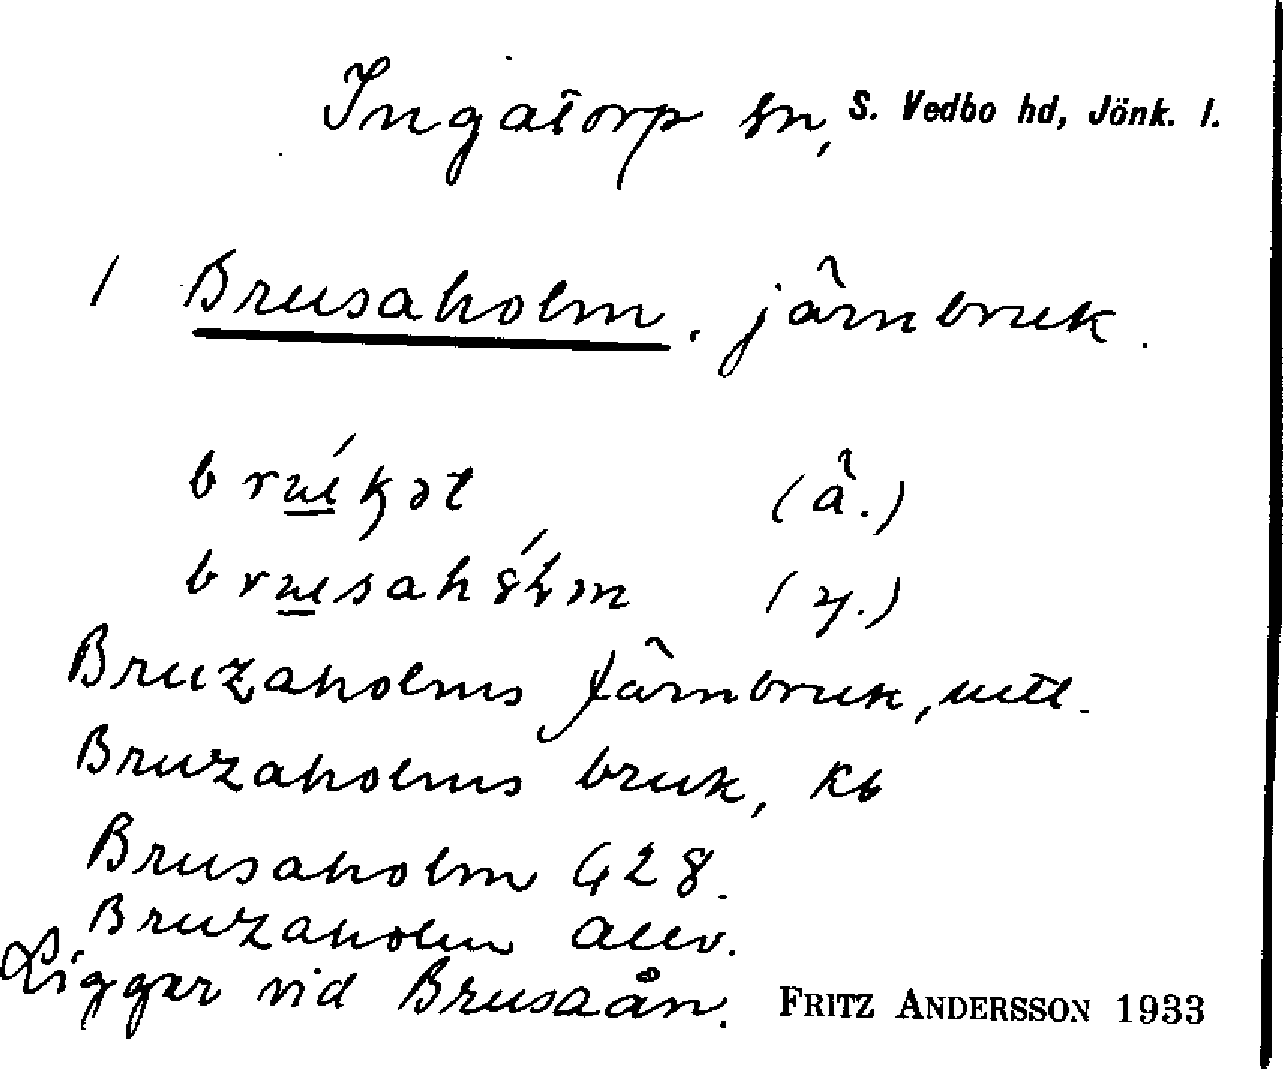 Ingatorp sn, S. Vedbo hd, Jönk. l.
1 Brusaholm. järnbruk.
(ä.)
(y.)
Bruzaholms Järnbruk, uttl.
Bruzaholms bruk, Kb
Brusaholm G28.
Bruzaholm allv.
Liggar vid Brusaån. FRITZ ANDERSSON 1933